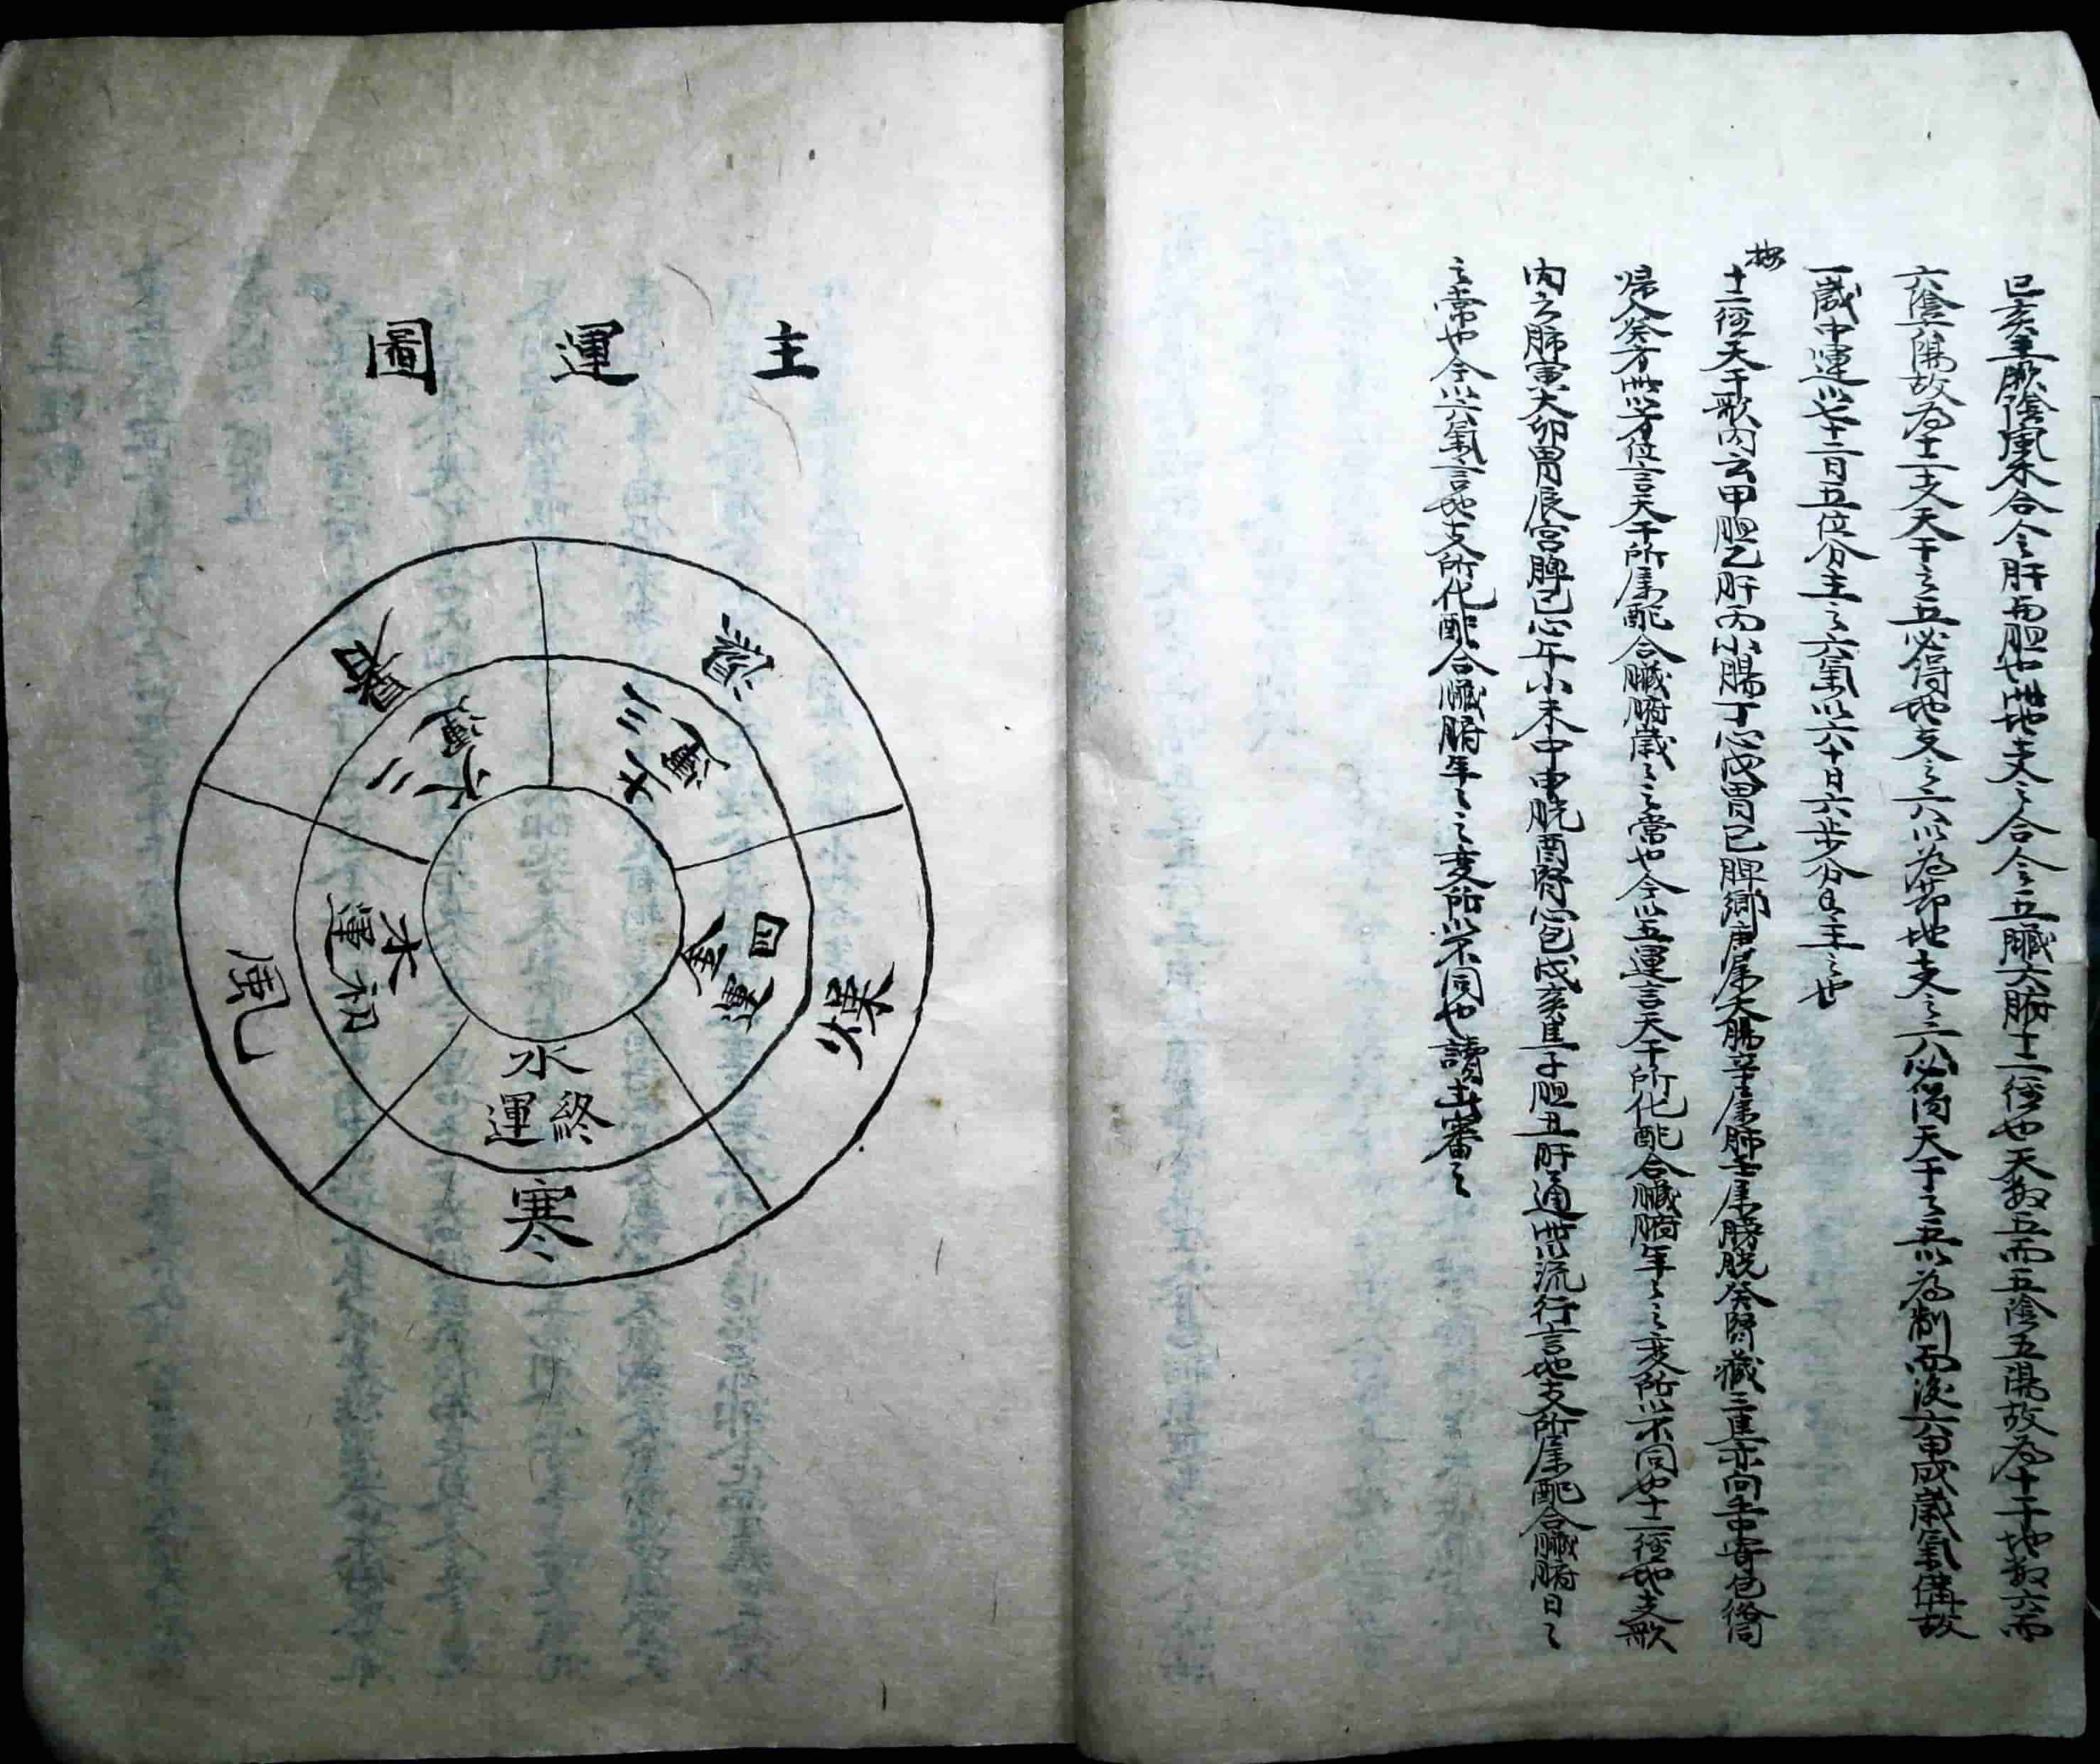 巳亥主厥陰風木合令肝與胆也此地支之合令五臟六腑十二經也天数五而五陰五陽故為十干地数六而
六陰六陽故為十二支天干之五必得地支之六以為節地支之六必得天干之五以為制而後六甲成歲氣備故
一歲中運以七十二日五位分主之六氣以六十日六步分主之也
按
十二經天干歌內云甲胆乙肝丙小腸丁心戊胃己脾鄉庚属大腸辛属肺壬属膀胱癸腎藏三焦亦向壬中寄包絡同
帰入癸方此以方位言天干所属配合臟腑歲之常也今以五運言天干所化配合臟腑年之変所以不同也十二經地支歌
內云肺寅大卯胃辰宮脾巳心午小未中申胱酉腎心包戌亥焦子胆丑肝通此以流行言地支所属配合臟腑日
之常也今以六氣言地支所化配合臟腑年之変所以不同也讀者審之
主運圖
暑
二火運
濕
三土運
燥
四金運
風
木初運
水
終運
寒